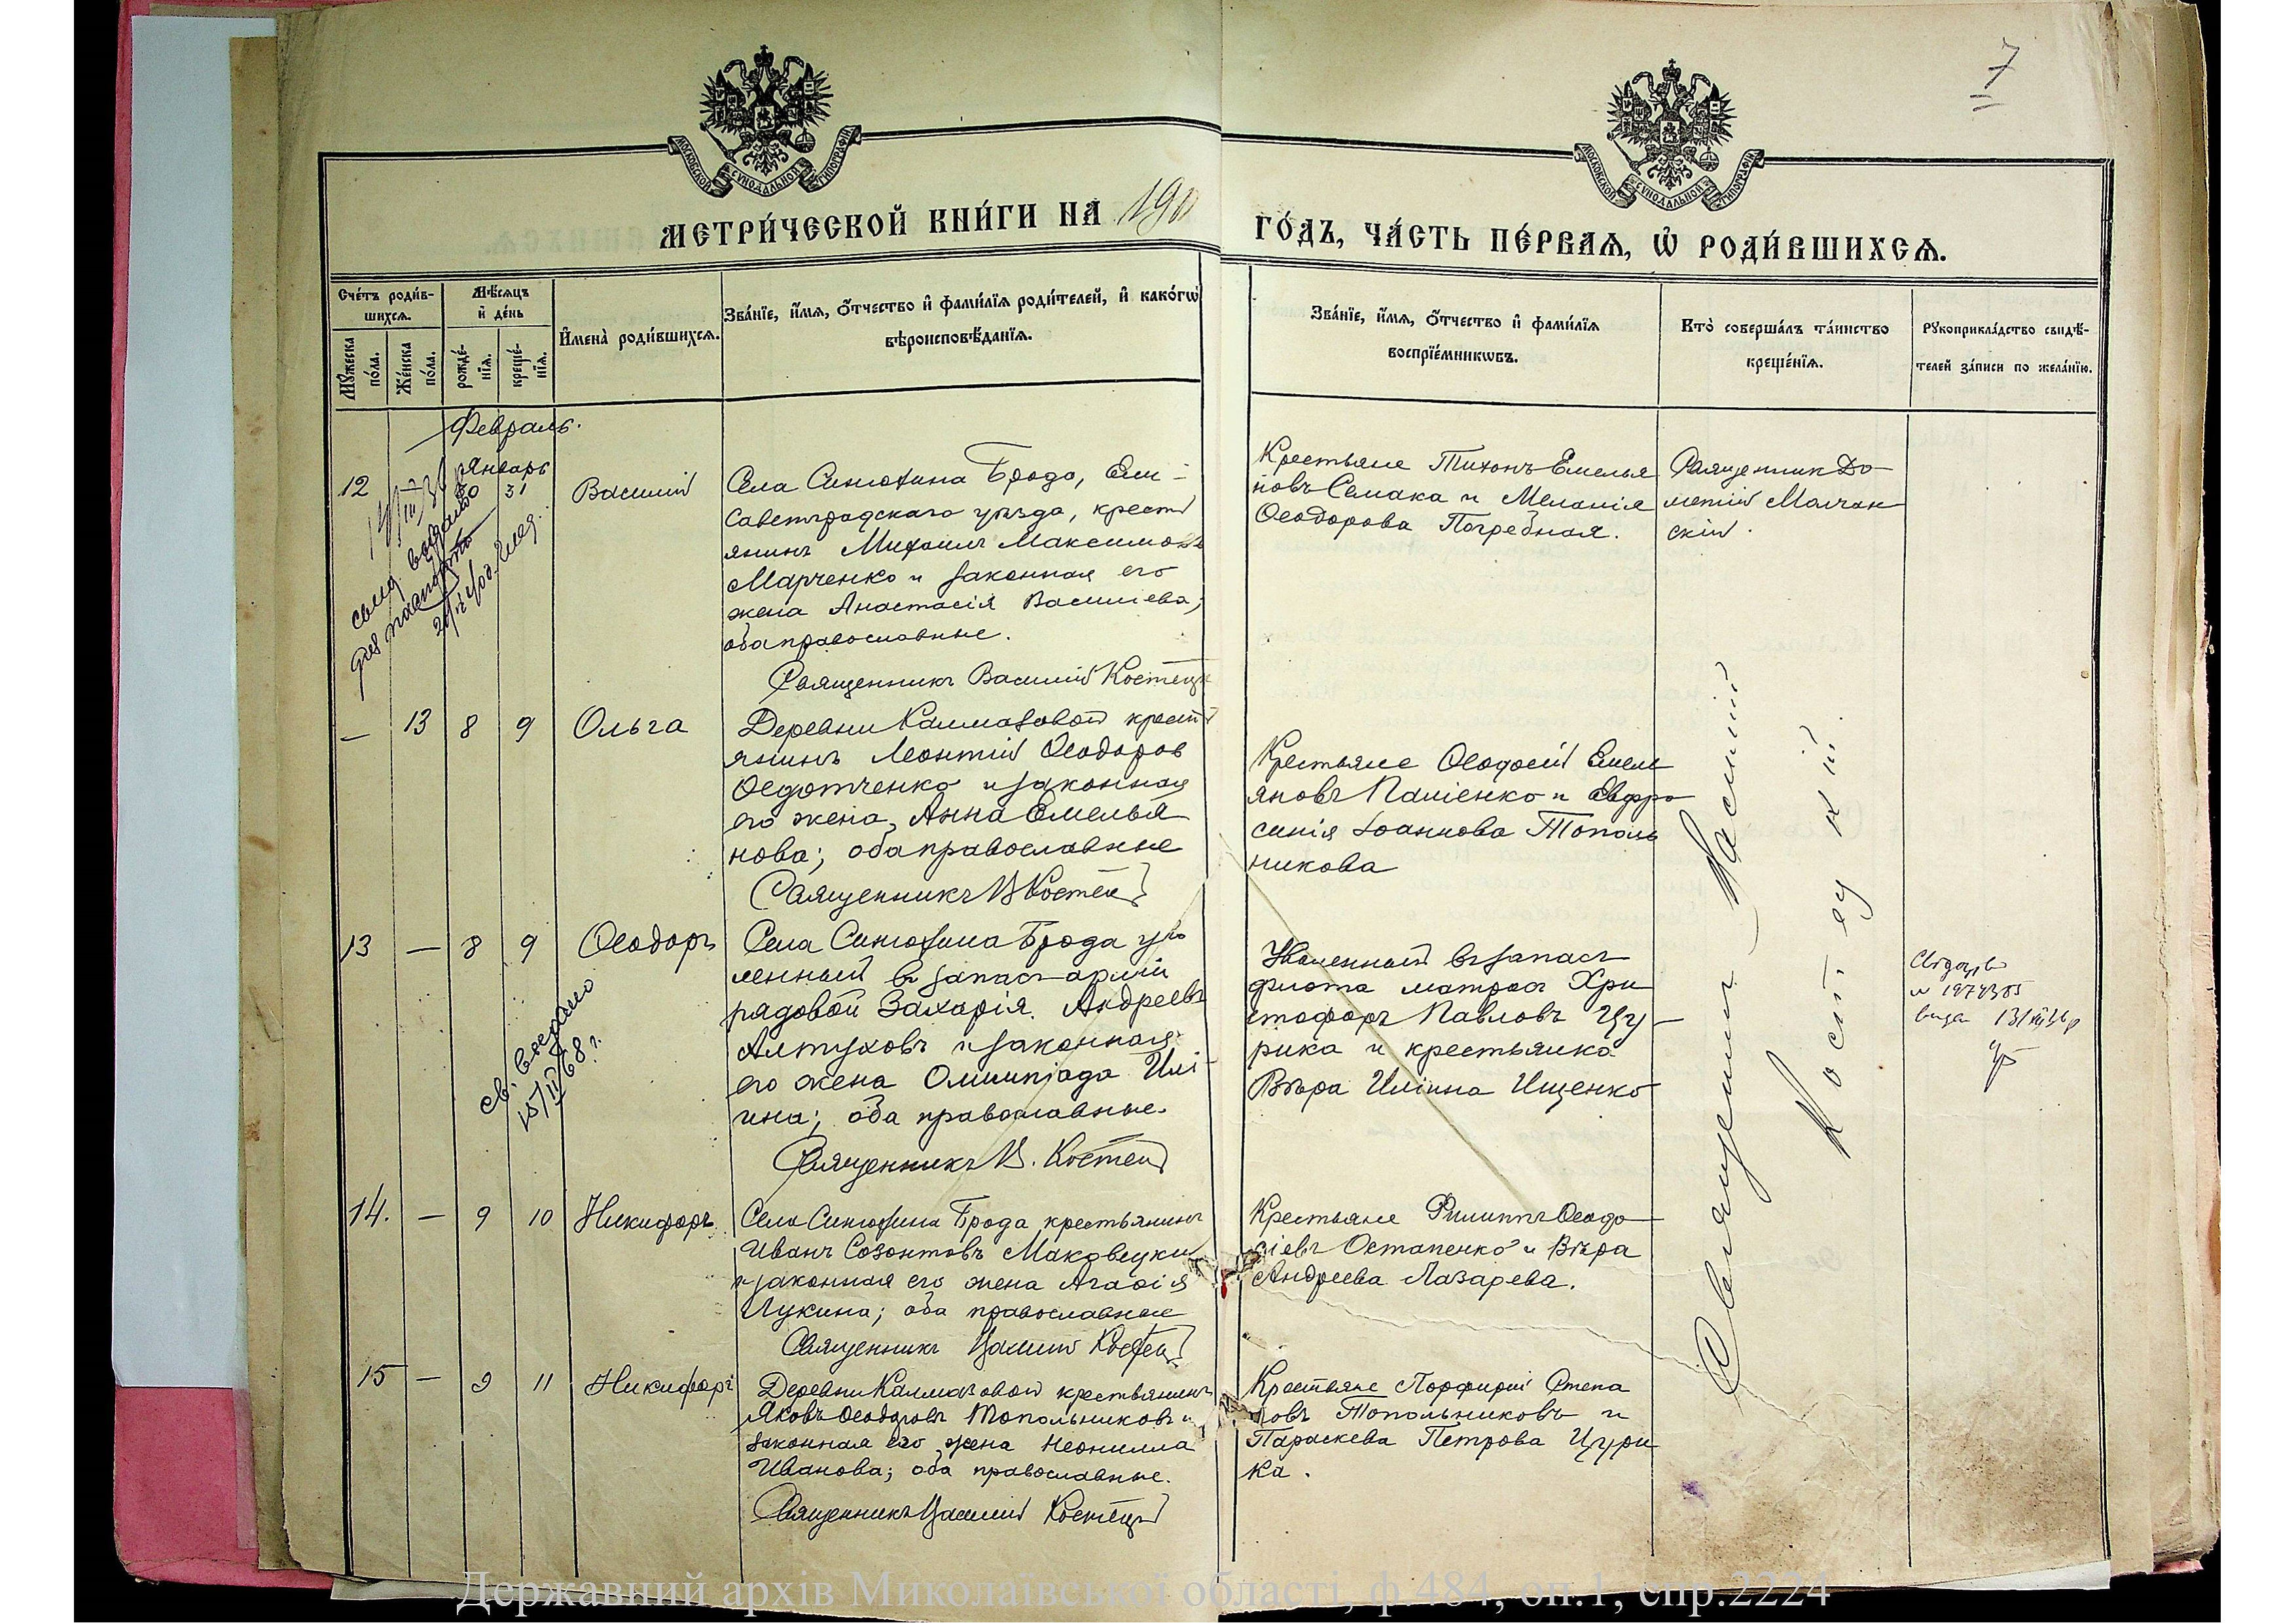 7
МОСКОВСКОЙ СУНОДАЛЬНОЙ ТИПОГРАФІИ
МОСКОВСКОЙ СУНОДАЛЬНОЙ ТИПОГРАФІИ
МЕТРИ́ЧЕСКОЙ КНИ́ГИ НА 190
ГО́ДЪ, ЧА́СТЬ ПЕ́РВАѦ, Ѡ҆ РОДИ́ВШИХСѦ.
Сче́тъ роди́в-
шихсѧ.
Мꙋ́жеска по́ла.
Же́нска по́ла.
Мѣ́сѧцъ
и҆ де́нь
рожде́-
нїѧ.
креще́-
нїѧ.
И҆мена̀ роди́вшихсѧ.
Зва́нїе, и҆́мѧ, ѻ҆́тчество и҆ фами́лїѧ роди́телей, и҆ како́гѡ
вѣроисповѣ́данїѧ.
Зва́нїе, и҆́мѧ, ѻ҆́тчество и҆ фами́лїѧ
воспрїе́мникѡвъ.
Кто̀ соверша́лъ та́инство
креще́нїѧ.
Рꙋкоприкла́дство свидѣ́-
телей за́писи по жела́нїю.
Февраль.
Январь
12 – 30 31 Василій
Села Синюхина Брода, Ели-
саветградскаго уѣзда, крест
янинъ Михаилъ Максимовъ
Марченко и законная его
жена Анастасія Васильева;
оба православные.
Священникъ Василій Костец
Крестьяне Тихонъ Емелья
новъ Семака и Меланія
Ѳеодорова Погребная.
Священник До
метій Молчан
скій.
выдано
для паспорта
– 13 8 9 Ольга
Деревни Калмазовой крест
янинъ Леонтій Ѳеодоров
Ѳедотченко и законная
его жена, Анна Емелья
нова; оба православные
Священникъ В Костец
Крестьяне Ѳеодосій Емель
яновъ Пашенко и Евфро
синія Іоаннова Тополь
никова
Священник Василій
Костецкій.
13 – 8 9 Ѳеодоръ
Села Синюхина Брода уво
ленный в запас арміи
рядовой Захарія Андреевъ
Алтуховъ и законная
его жена Олимпіада Илі-
ина; оба православные.
Священникъ В. Костец
Уволенный въ запас
флота матрос Хри
стофоръ Павловъ Цу-
рика и крестьянка
Вѣра Иліина Ищенко
св. выдано
15/II 68 г.
14. – 9 10 Никифоръ
Села Синюхина Брода крестьянинъ
Иванъ Созонтовъ Маковецкій
и законная его жена Агаѳія
Лукина; оба православные
Священникъ Василій Костец
Крестьяне Филиппъ Ѳеодо
сіевъ Остапенко и Вѣра
Андреева Лазарева.
15 – 9 11 Никифоръ
Деревни Калмазовой крестьянинъ
Яковъ Ѳеодоровъ Топольниковъ и
законная его жена Неонилла
Иванова; оба православные.
Священникъ Василій Костец
Крестьяне Порфирій Степа
новъ Топольниковъ и
Параскева Петрова Цури
ка.
Державний архів Миколаївської області, ф.484, оп.1, спр.2224